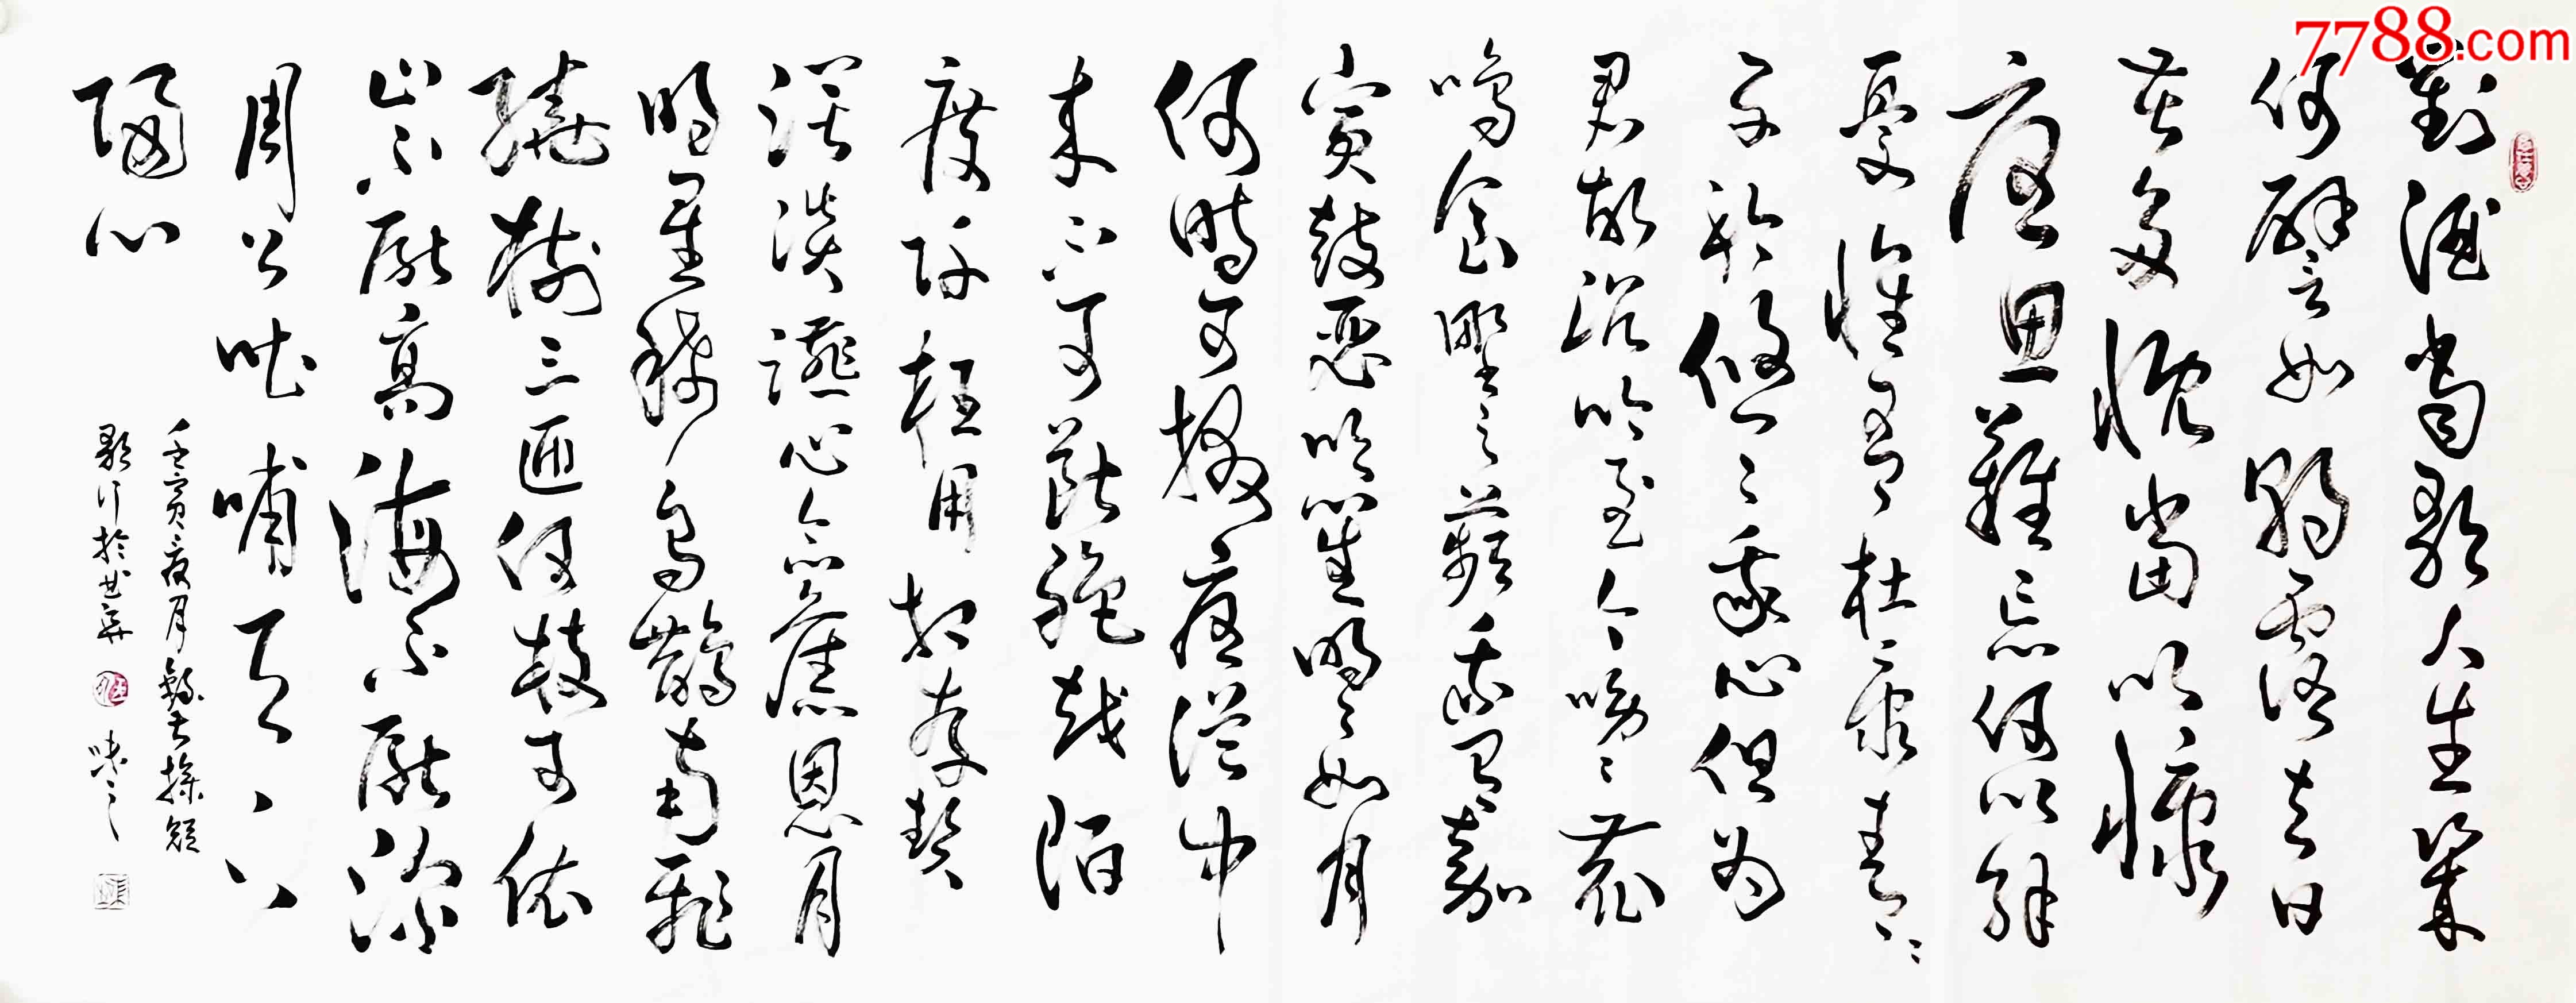 對酒當歌人生幾
何譬如朝露去日
苦多慨當以慷
憂思難忘何以解
憂惟有杜康青々
子衿悠々我心但為
君故沉吟至今呦々鹿
鳴食野之蘋我有嘉
賓鼓瑟吹笙明々如月
何時可掇憂從中
來不可斷絕越陌
度阡枉用相存契
闊談讌心念舊恩月
明星稀烏鵲南飛
繞樹三匝何枝可依
山不厭高海不厭深
周公吐哺天下
歸心
壬寅夏月錄曹操短
歌行於
7788.com